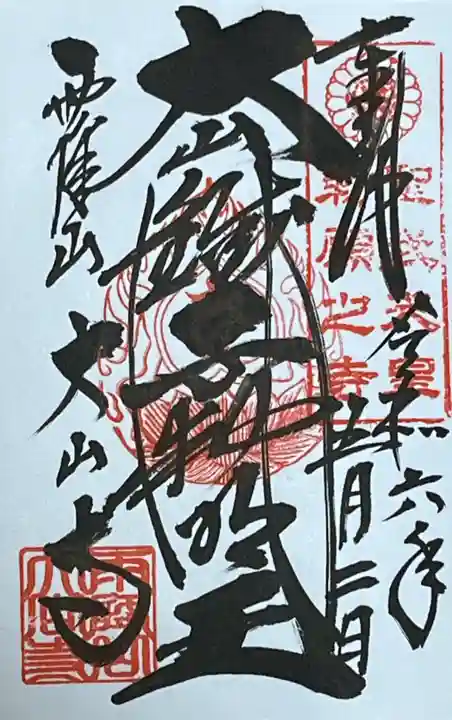 奉拝
聖武天皇
勅願之寺
令和六年
五月二日
大山鐵不動明王
雨降山
大山寺